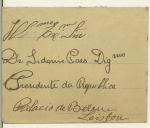 Illmo Exmo Snr
Dr Sidonio Paes Digmo
Presidente da Republica
Palacio de Belem
Lisboa